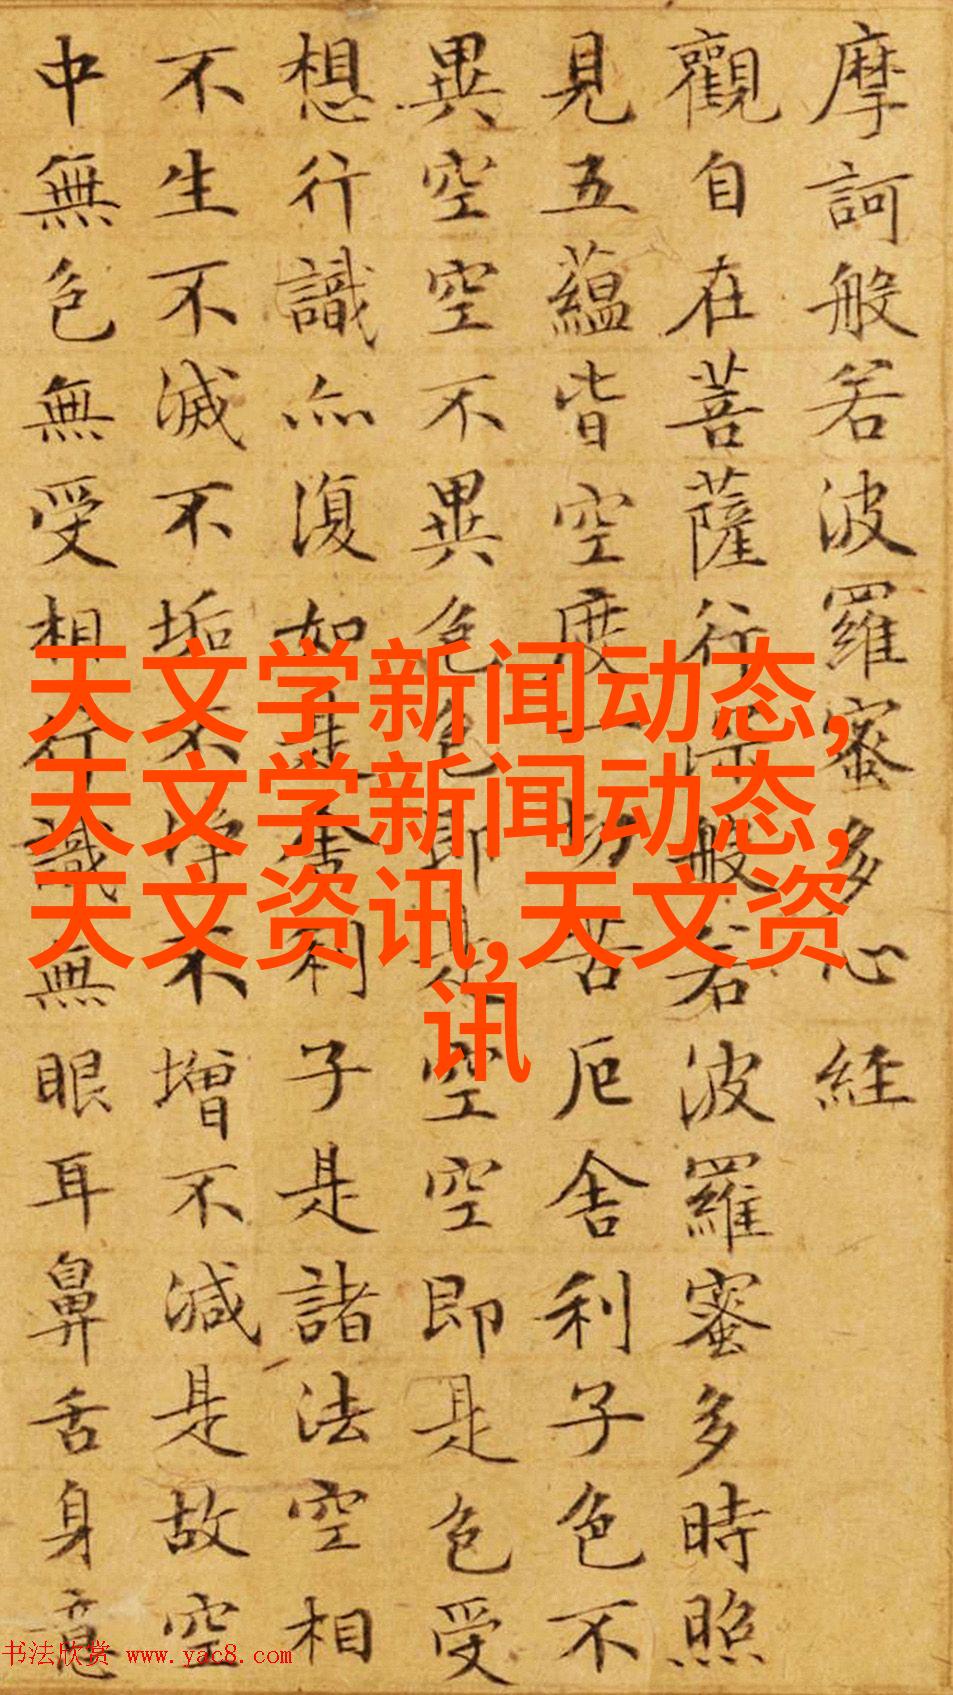 摩訶般若波羅蜜多心経
觀自在菩薩行深般若波羅蜜多時照
見五蘊皆空度一切苦厄舍利子色不
異空空不異色色即是空空即是色受
想行識亦復如是舍利子是諸法空相
不生不滅不垢不淨不增不減是故空
中無色無受想行識無眼耳鼻舌身意
天文学新闻动态,
天文学新闻动态,
天文资讯,天文资
讯
书法欣赏 www.yac8.com